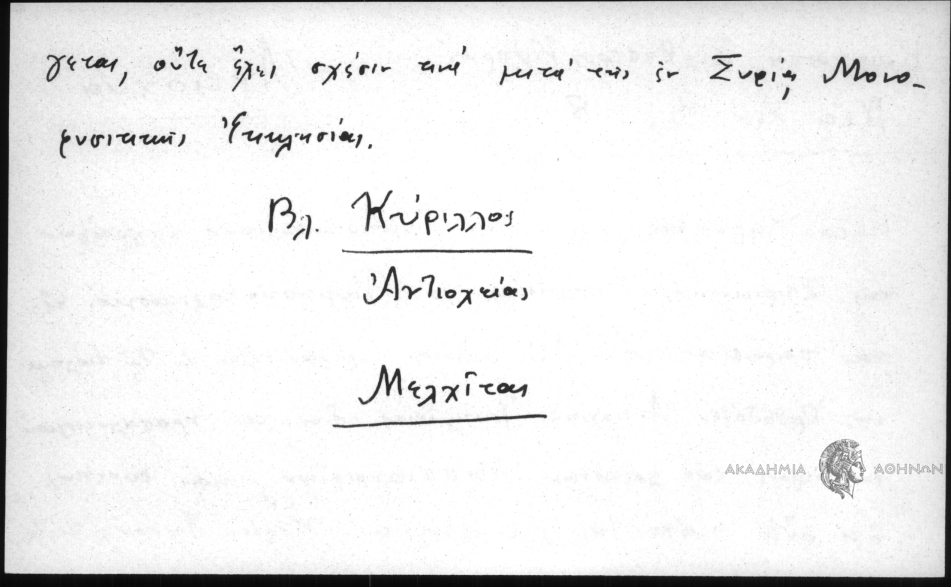 γεται, οὔτε ἔχει σχέσιν τινά μετά τῆς ἐν Συρίᾳ Μονο-
φυσιτικῆς Ἐκκλησίας.
Βλ. Κύριλλος
Ἀντιοχείας
Μελχῖται
ΑΚΑΔΗΜΙΑ ΑΘΗΝΩΝ